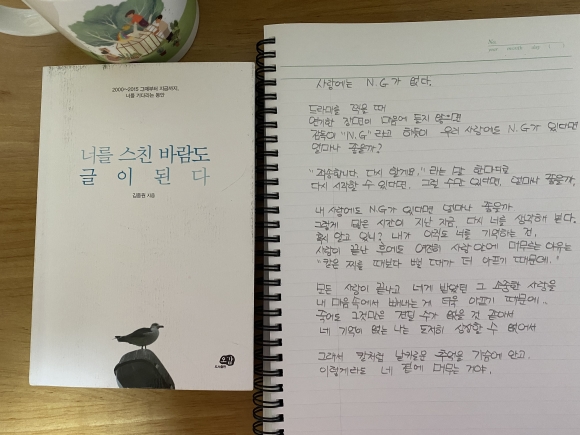 2000~2015 그때부터 지금까지,
너를 기다리는 동안
너를 스친 바람도
글이 된다
김종원 지음
사랑에는 N.G가 없다.
드라마를 찍을 때
연기한 장면이 마음에 들지 않으면
감독이 "N.G"라고 하듯이 우리 사랑에도 N.G가 있다면
얼마나 좋을까?
"죄송합니다. 다시 할게요."라는 말 한마디로
다시 시작할 수 있다면, 그럴 수만 있다면, 얼마나 좋을까.
내 사랑에도 N.G가 있다면 얼마나 좋을까
그렇게 많은 시간이 지난 지금, 다시 너를 생각해 본다.
혹시 알고 있니? 내가 아직도 너를 기억하는 건,
사랑이 끝난 후에도 여전히 사랑 안에 머무르는 이유는
"칼은 찌를 때보다 뺄 때가 더 아프기 때문에."
모든 사랑이 끝나고 너에게 받았던 그 소중한 사랑을
내 마음속에서 빼내는 게 더욱 아프기 때문에..
죽어도 그것만은 견딜 수가 없을 것 같아서
네 기억이 없는 나는 도저히 상상할 수 없어서
그래서 칼처럼 날카로운 추억을 가슴에 안고.
이렇게라도 네 곁에 머무는 거야.